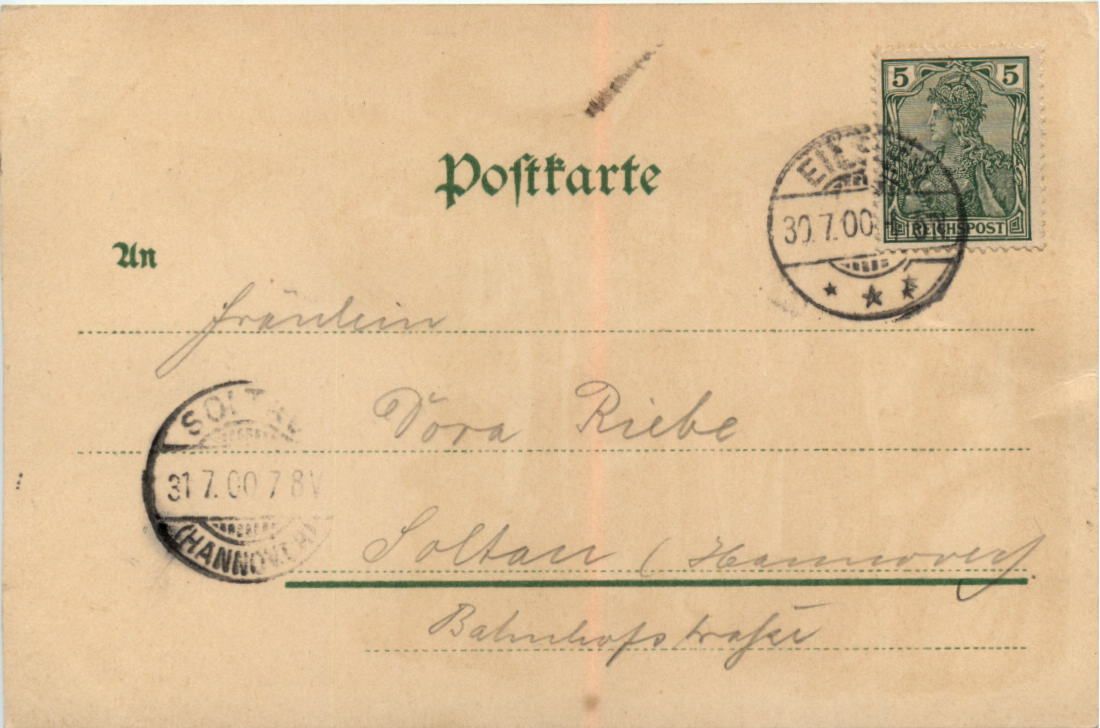 5 5
REICHSPOST
Postkarte
30.7.00
An
Fräulein
Dora Riebe
SOLTAU
31.7.00 7 8V
(HANNOVER)
Soltau (Hannover)
Bahnhofstraße